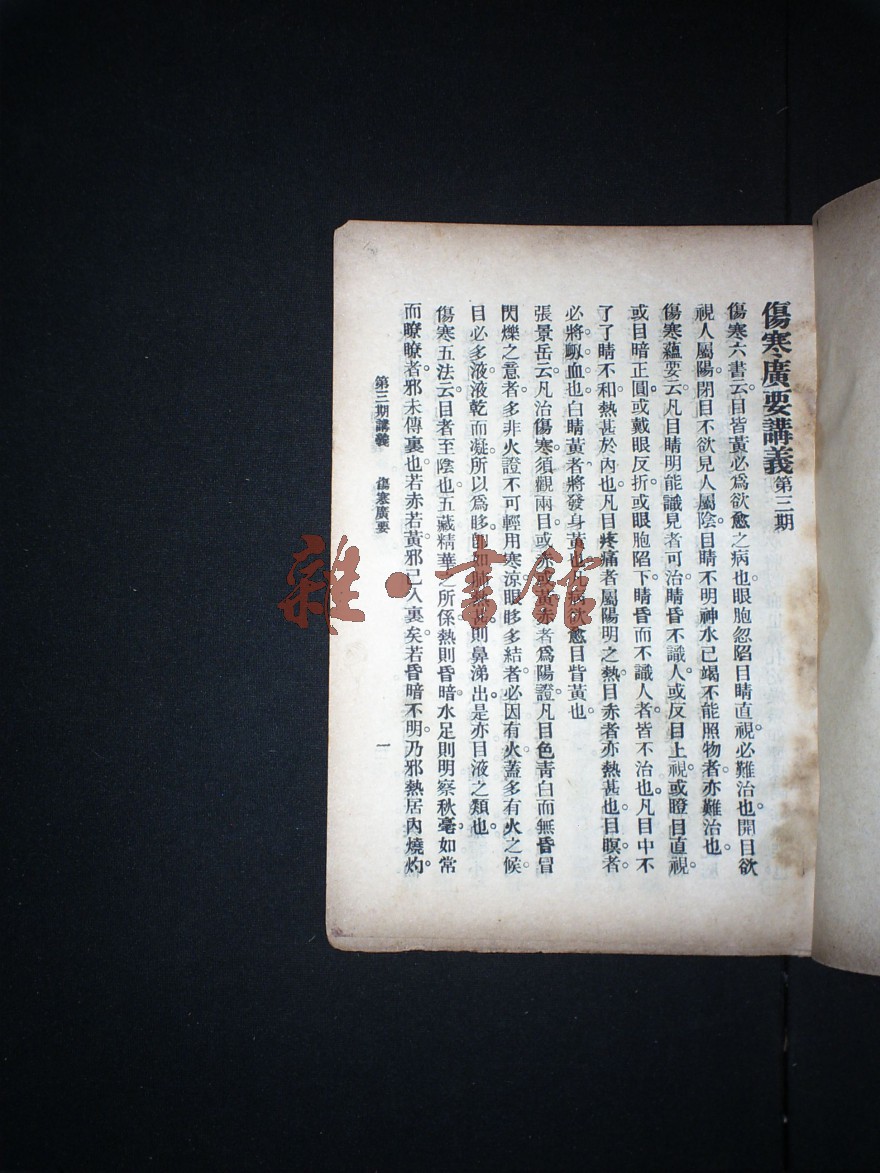 傷寒廣要講義 第三期
傷寒六書云。目皆黃必爲欲愈之病也。眼胞忽陷目睛直視必難治也。開目欲
視人屬陽。閉目不欲見人屬陰。目睛不明神水已竭不能照物者。亦難治也。
傷寒蘊要云。凡目睛明能識見者可治。睛昏不識人或反目上視。或瞪目直視。
或目暗正圓。或戴眼反折。或眼胞陷下。睛昏而不識人者。皆不治也。凡目中不
了了睛不和。熱甚於內也。凡目疼痛者屬陽明之熱。目赤者亦熱甚也。目瞑者。
必將衂血也。白睛黃者將發身黃也。凡病欲愈目皆黃也。
張景岳云。凡治傷寒須觀兩目。或赤或黃赤者爲陽證。凡目色靑白而無昏冒
閃爍之意者。多非火證不可輕用寒涼。眼眵多結者。必因有火。蓋多有火之候。
目必多液。液乾而凝。所以爲眵。卽如肺熱甚則鼻涕出。是亦目液之類也。
傷寒五法云。目者至陰也。五藏精華之所係。熱則昏暗。水足則明察秋毫。如常
而瞭瞭者。邪未傳裏也。若赤若黃。邪已入裏矣。若昏暗不明。乃邪熱居內燒灼。
第三期講義 傷寒廣要 一
雜·書館